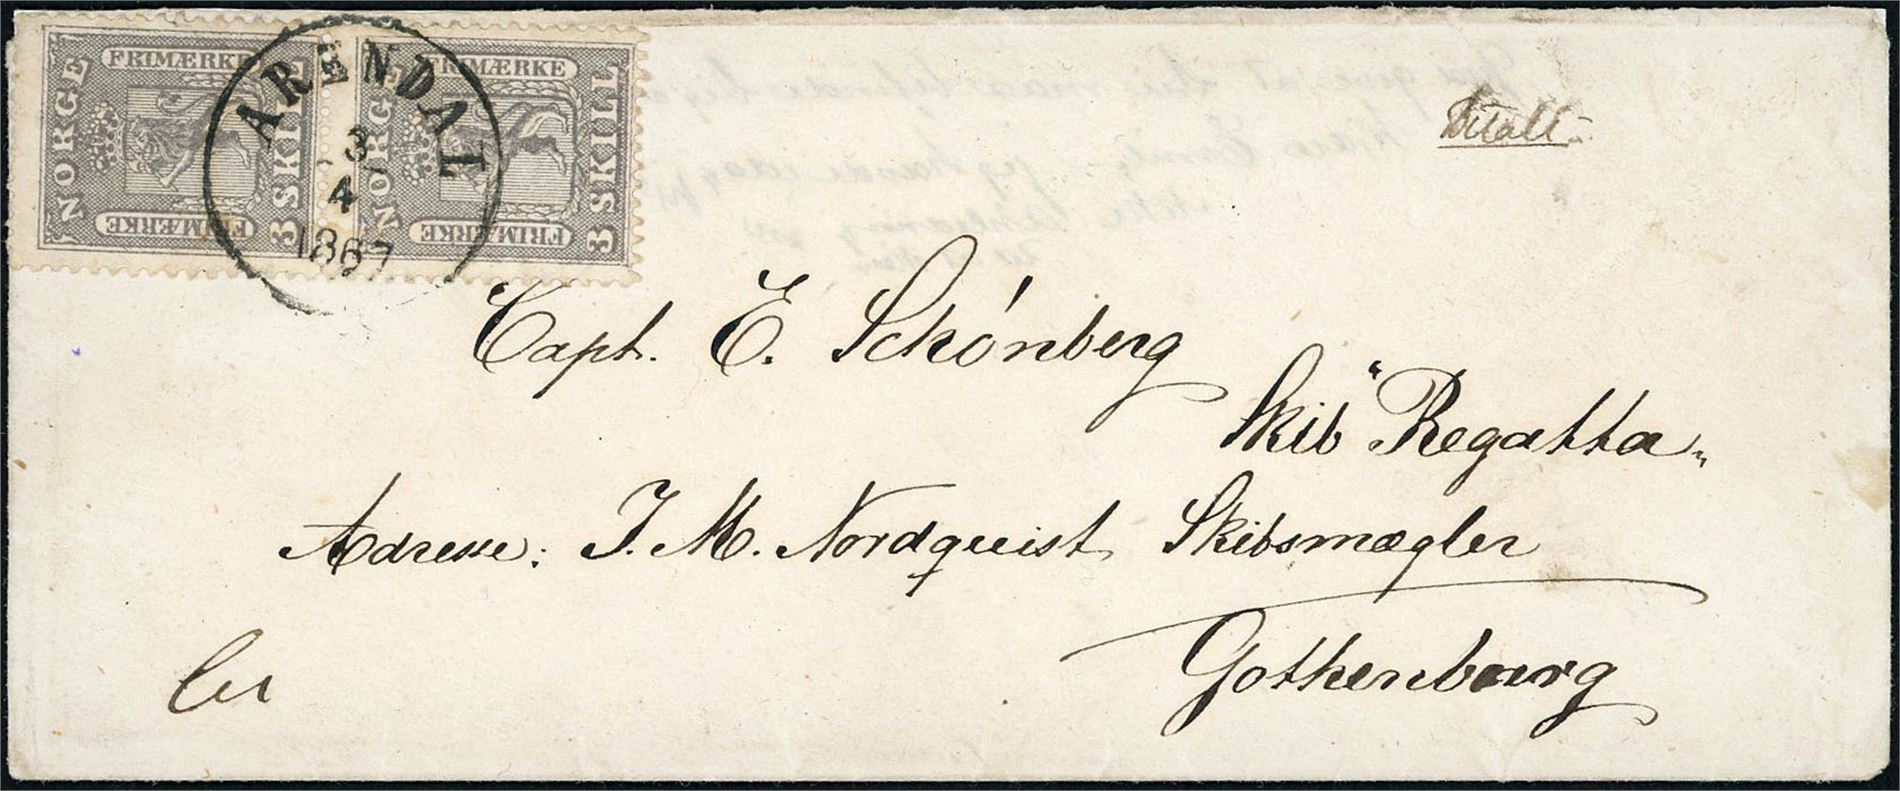 NORGE FRIMÆRKE 3 SKILL FRIMÆRKE
NORGE FRIMÆRKE 3 SKILL FRIMÆRKE
ARENDAL
3
4
1867
betalt
Capt. E. Schónberg
Skib "Regatta"
Adresse: J. M. Nordquist Skibsmægler
Gothenbourg